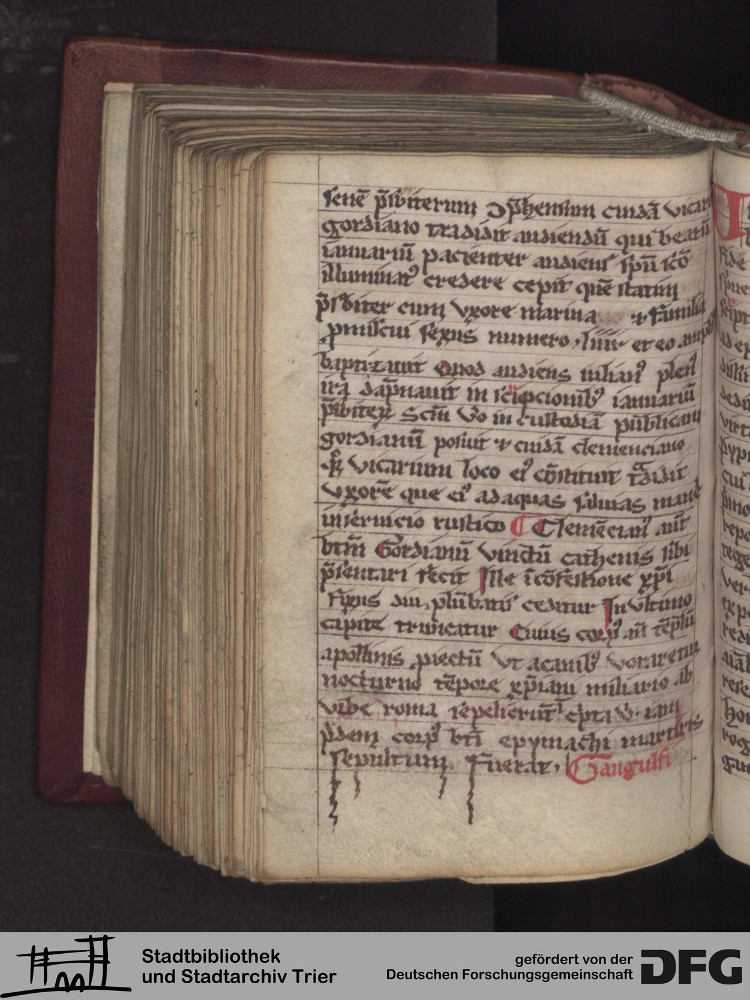 senē p̄sbiterum cuidā vicar
gordiano tradidit audiendū qui beatū
ianuariū pacienter audiens spū scō
illuminatꝰ credere cepit quē statim
p̄sbiter cum vxore marina ⁊ familia
ꝓmiscui sexus numero liiiͦ et eo ampl
baptizauit Quod audiens iulianꝰ plenꝰ
ira dāpnauit in ianuariū
p̄sbiterū Scm̄ vo in custodiā publicam
gordianū posuit ⁊ cuidā clemenciano
vicarium loco eiꝰ cōstituit tradidit
vxorē que eiꝰ ad aquas saluias man
in seruicio rustico Clemēcianꝰ aūt
btm̄ Gordianū vinctū cathenis sibi
p̄sentari fecit Ille ī cōfessione xp̄i
fixus diu plūbatis ceditur In vltimo
capite truncatur Cuius corpꝰ aū tēplū
apollinis ꝓiectū vt a canibꝰ voraretur
nocturno tēpore xp̄iani miliario ab
vrbe roma sepelierūt c̄pta vbi iam
p̄dem corpꝰ bti epymachi martiris
sepultum fuerat. Gangulfi
Stadtbibliothek
und Stadtarchiv Trier
gefördert von der
Deutschen Forschungsgemeinschaft
DFG